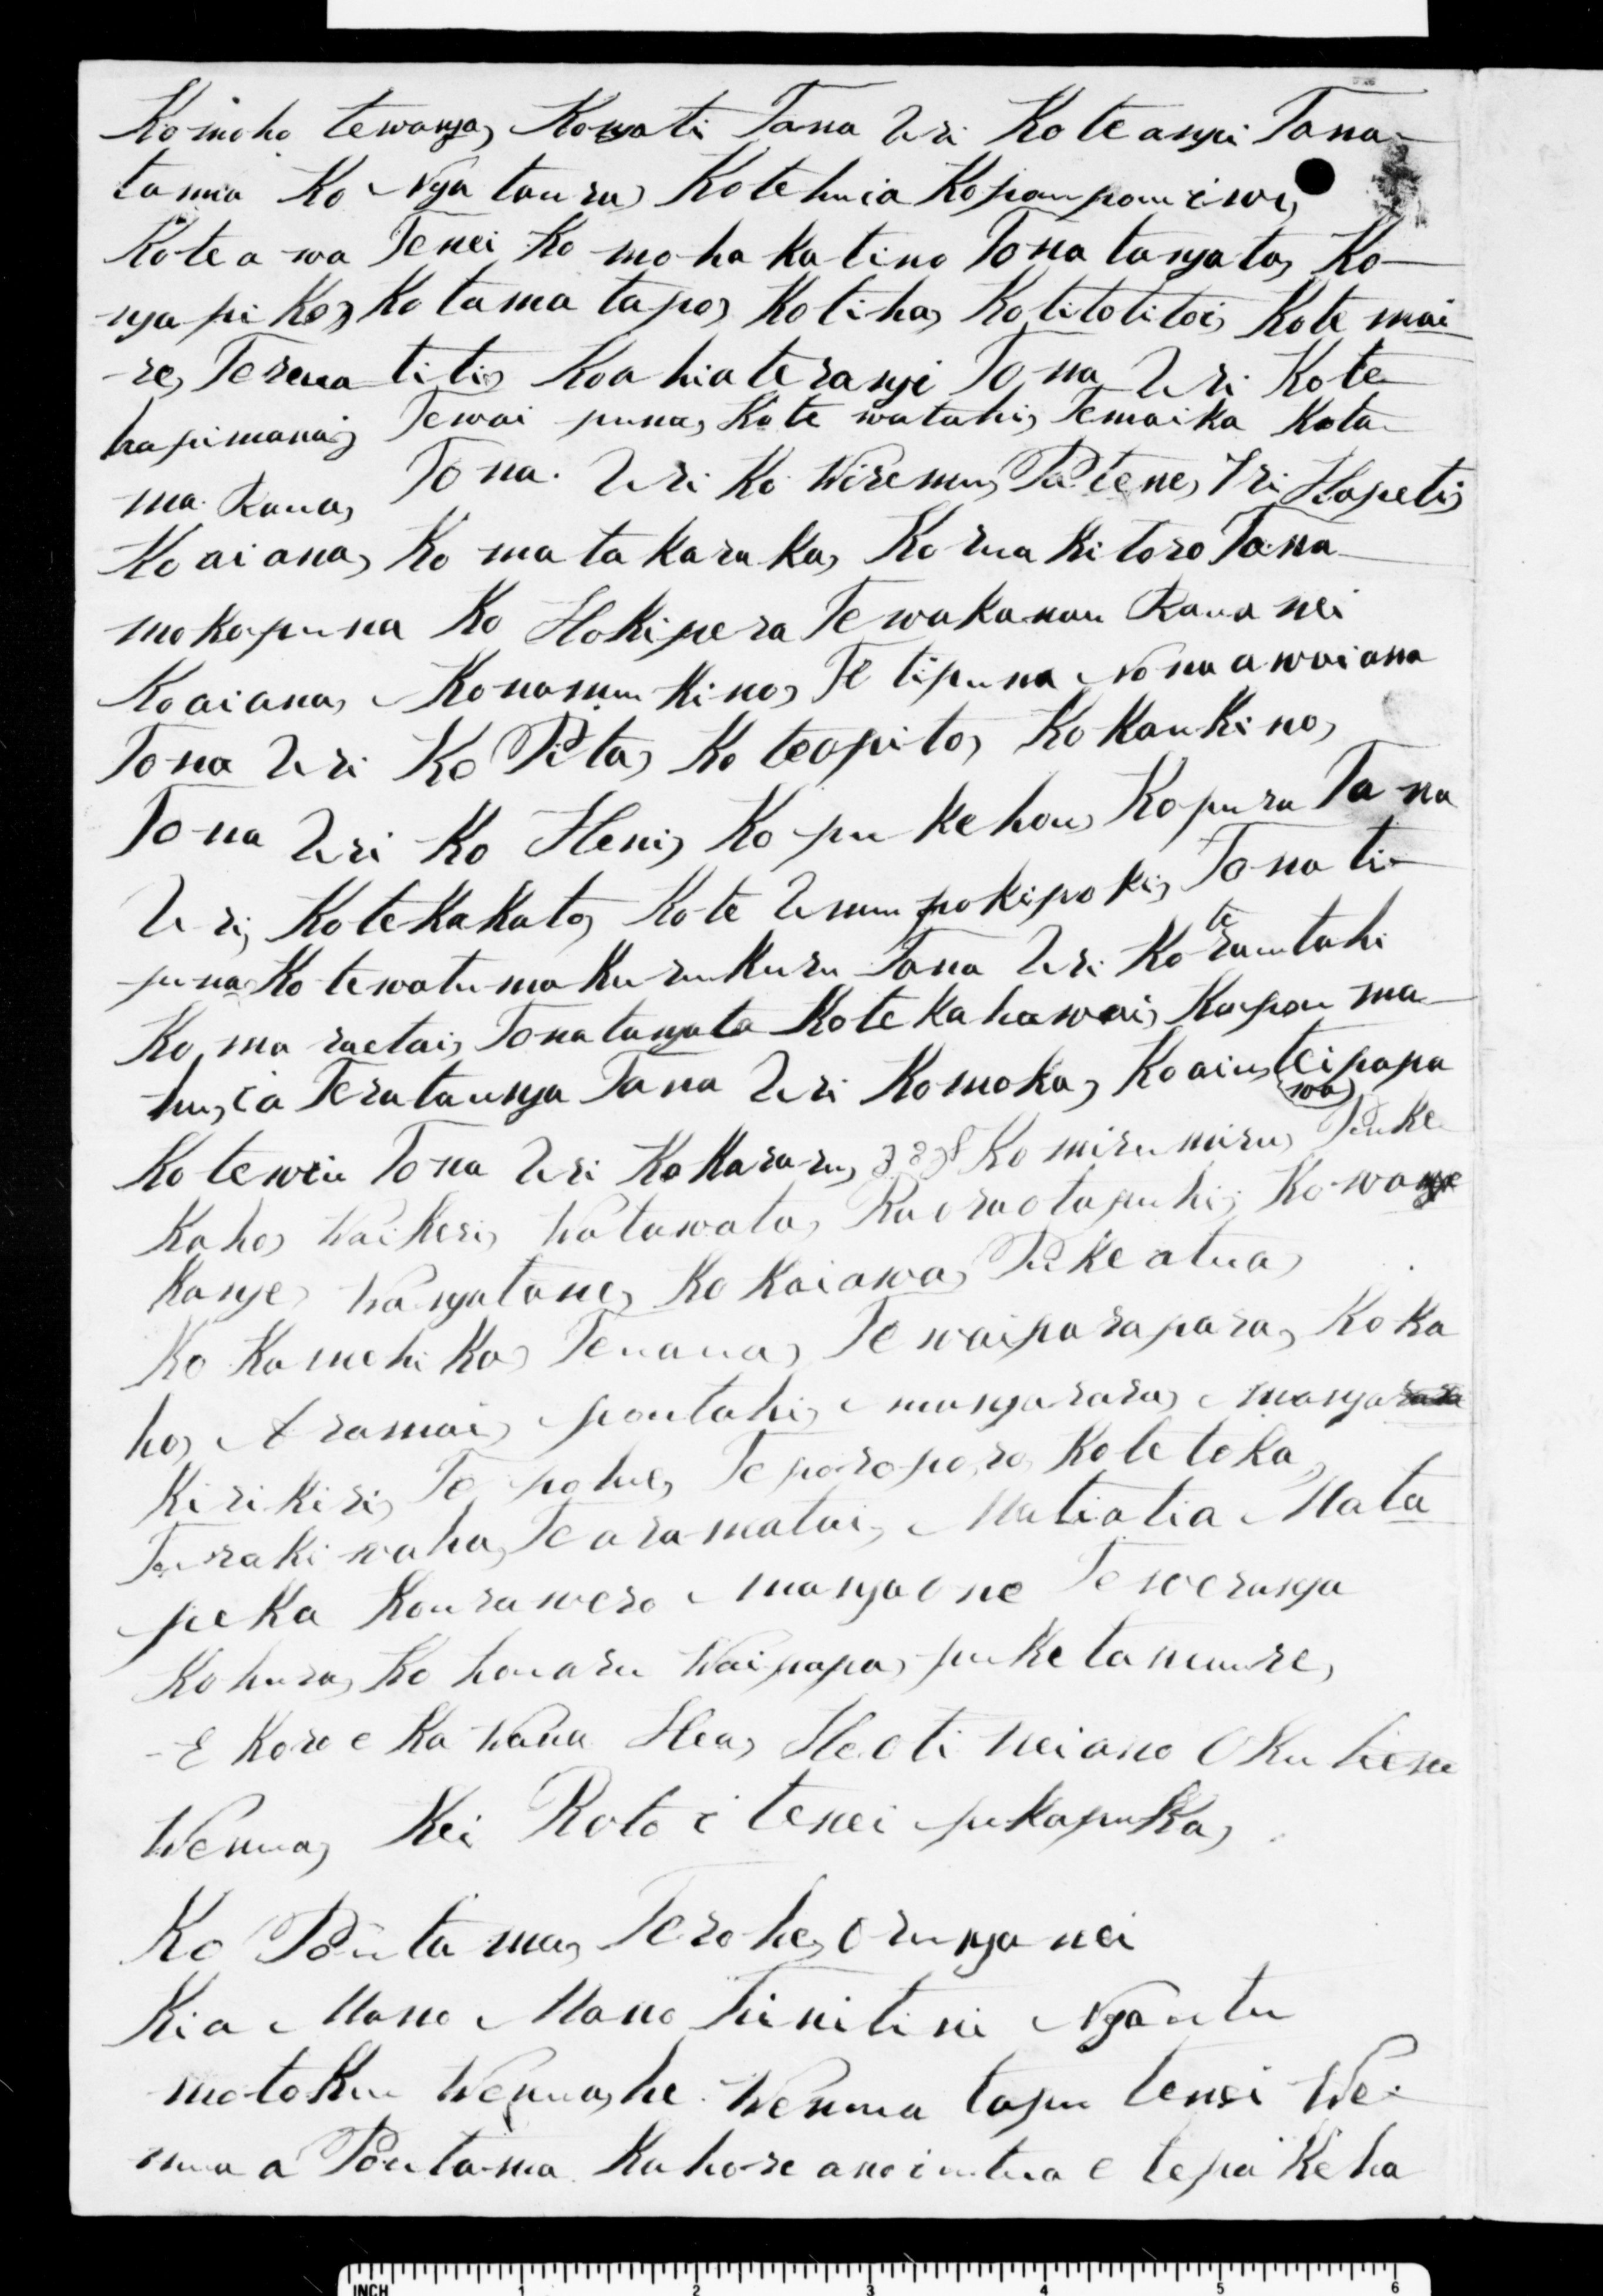 Ko moho tewanga, Kowati Tana Uri Ko te angi Tana
tamia Ko Nga taura, Kotehuia Kopaupau iwi,
Kotea wa Tenei Ko mohakatino Tona tangata, Ko
nga piko, Ko tama tapo, Kotiha, Kotitotitoi, Kote mai
-re, Terua titi, Koahiaterangi Tona Uri Kote
hapimana, Tewai puna, Kote watahi, Temaika Kota
ma Raua, Tona Uri Ko Wiremu, Patene, Iri Hapeti,
Koaiana, Ko matakaraka, Ko rua ki toro Tana
mokopuna Ko Hokipera Tewakanau Raua nei
Koaiana, Konamu Kino, Te tipuna Nona awaiana
Tona Uri Ko Pita, Ko teopito, Ko Kaukino,
Tona Uri Ko Heni, Ko puke hou, Kopura Tana
Uri, Kotekakato, Kote Umu pokipoki, Tona ti
puna Kotewatu makurukuru Tana Uri Ko te rautahi
Ko, ma raetai, Tona tangata Kote kahawai, Kopou ma
hu, ia Teratanga Tana Uri Komoka, Koaiu, teipapa
(wa)
Kotewiu Tona Uri Ko Kararu, Ko miru miru, Puke
Kaho, Waikeri, Watawata, Raoraotapuhi, Ko wange
Kange, Wangatane, Ko Kaiawa, Pukeatua,
Ko Kamehika, Teuaua, Te waiparapara, Ko Ka
ho, Aramai, poutahi, mangarara, manga
Kirikiri, Te pohue, Te poropora, Kotetoka,
Turakiwaha, Te aramatai, Matiatia Mata
peka Kourawero mangaone Te weranga
Kohura, Ko houaru Waipapa, puketamuure,
- E Koro e Ka Wana Hea, Heoti Neiano Oku hienu
Wenua, Kei Roto i tenei pukapuka,
Ko Poutama, Terohe, O runga nei
Kia Mano Mano tinitini Nga utu
motoku Wenua, he Wenua tapu tenei We
nua a Poutama Kahore ano i utua e tepakeha
INCH 1 2 3 4 5 6